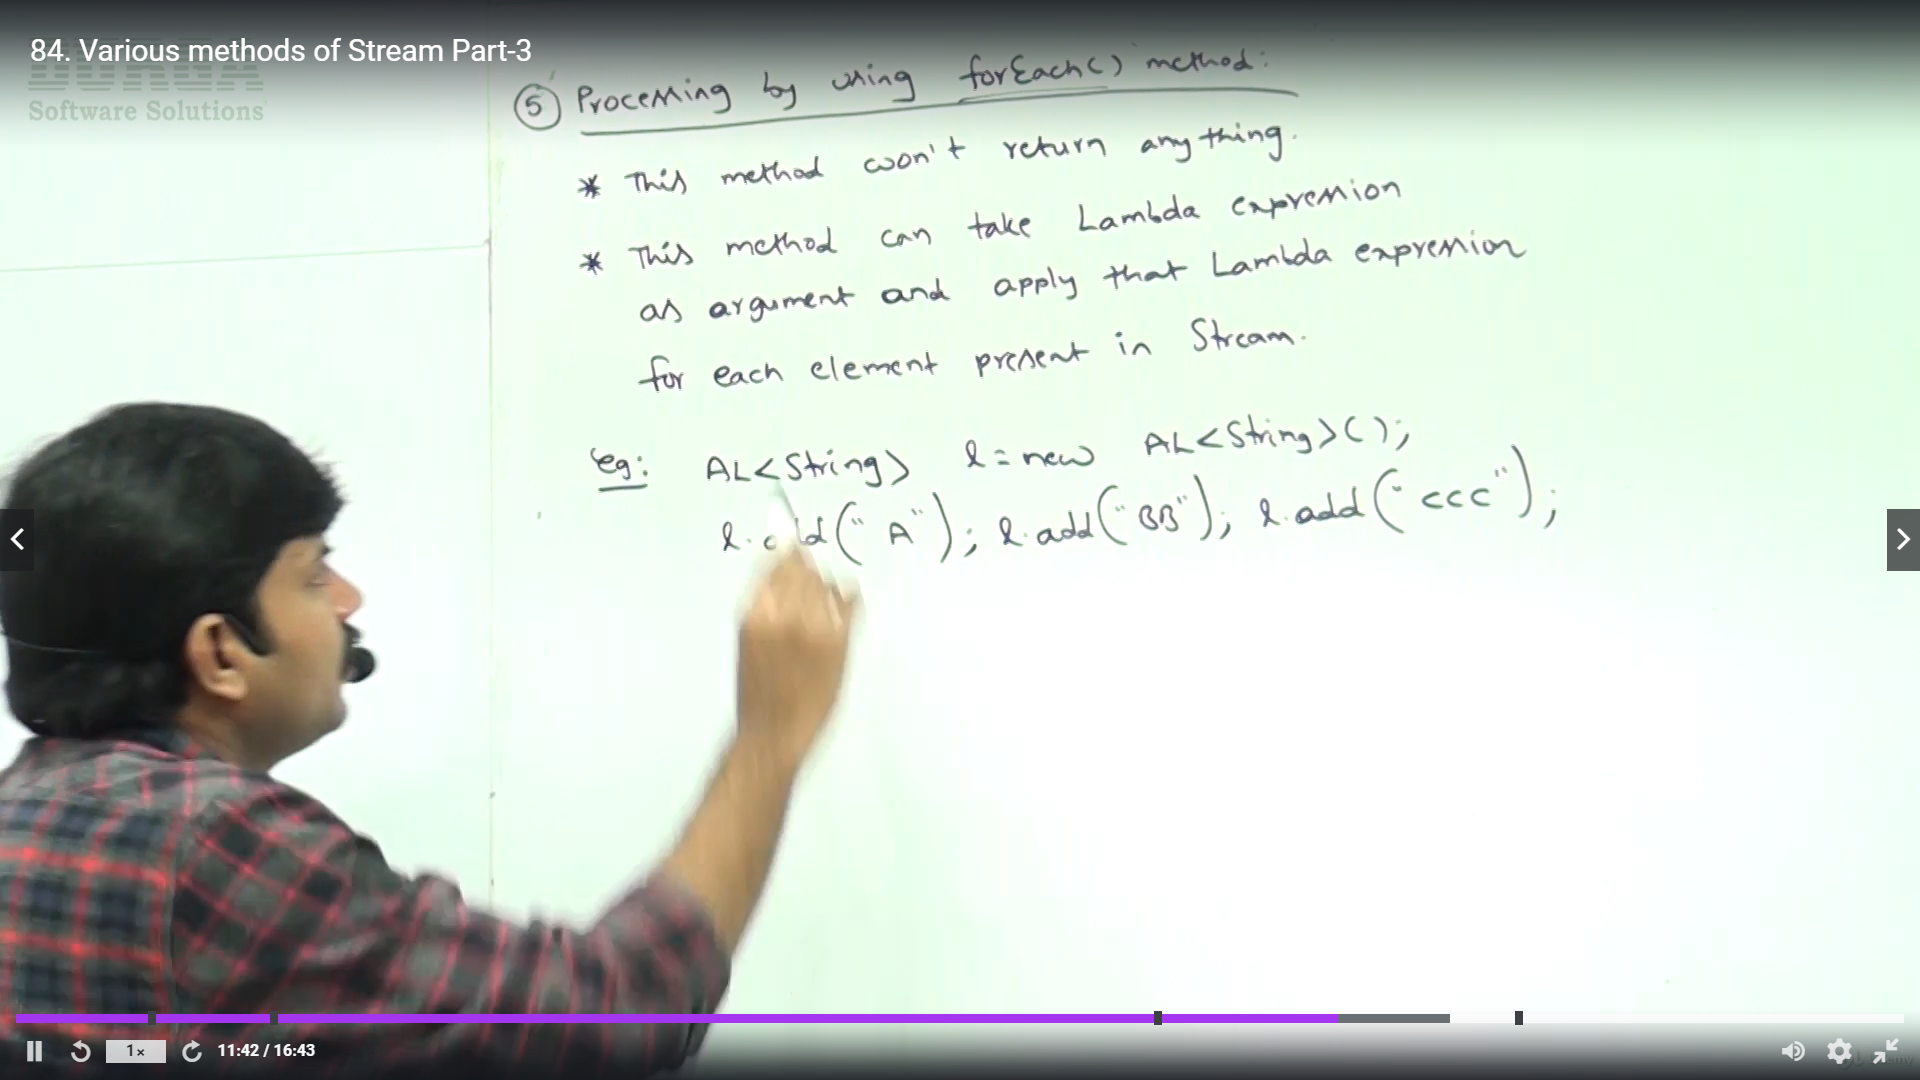 84. Various methods of Stream Part-3
DURGA
Software Solutions
5 Processing by using forEach() method:
* This method won't return anything.
* This method can take Lambda expression
as argument and apply that Lambda expression
for each element present in Stream.
eg: AL<String> l = new AL<String>();
l.add("A"); l.add("BB"); l.add("CCC");
1x
11:42 / 16:43